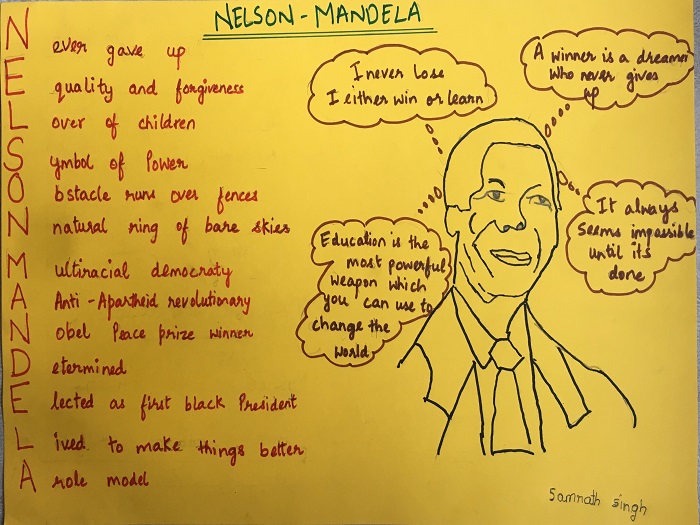 NELSON-MANDELA
N ever gave up
E quality and forgiveness
L over of children
S ymbol of Power
O bstacle runs over fences
N natural ring of bare skies
M ultiracial democraty
A Anti-Apartheid revolutionary
N obel Peace prize winner
D etermined
E lected as first black President
L ived to make things better
A role model
I never lose
I either win or learn
A winner is a dreamer
Who never gives
up
Education is the
most powerful
weapon which
you can use to
change the
world
It always
Seems impossible
until its
done
Samnath singh